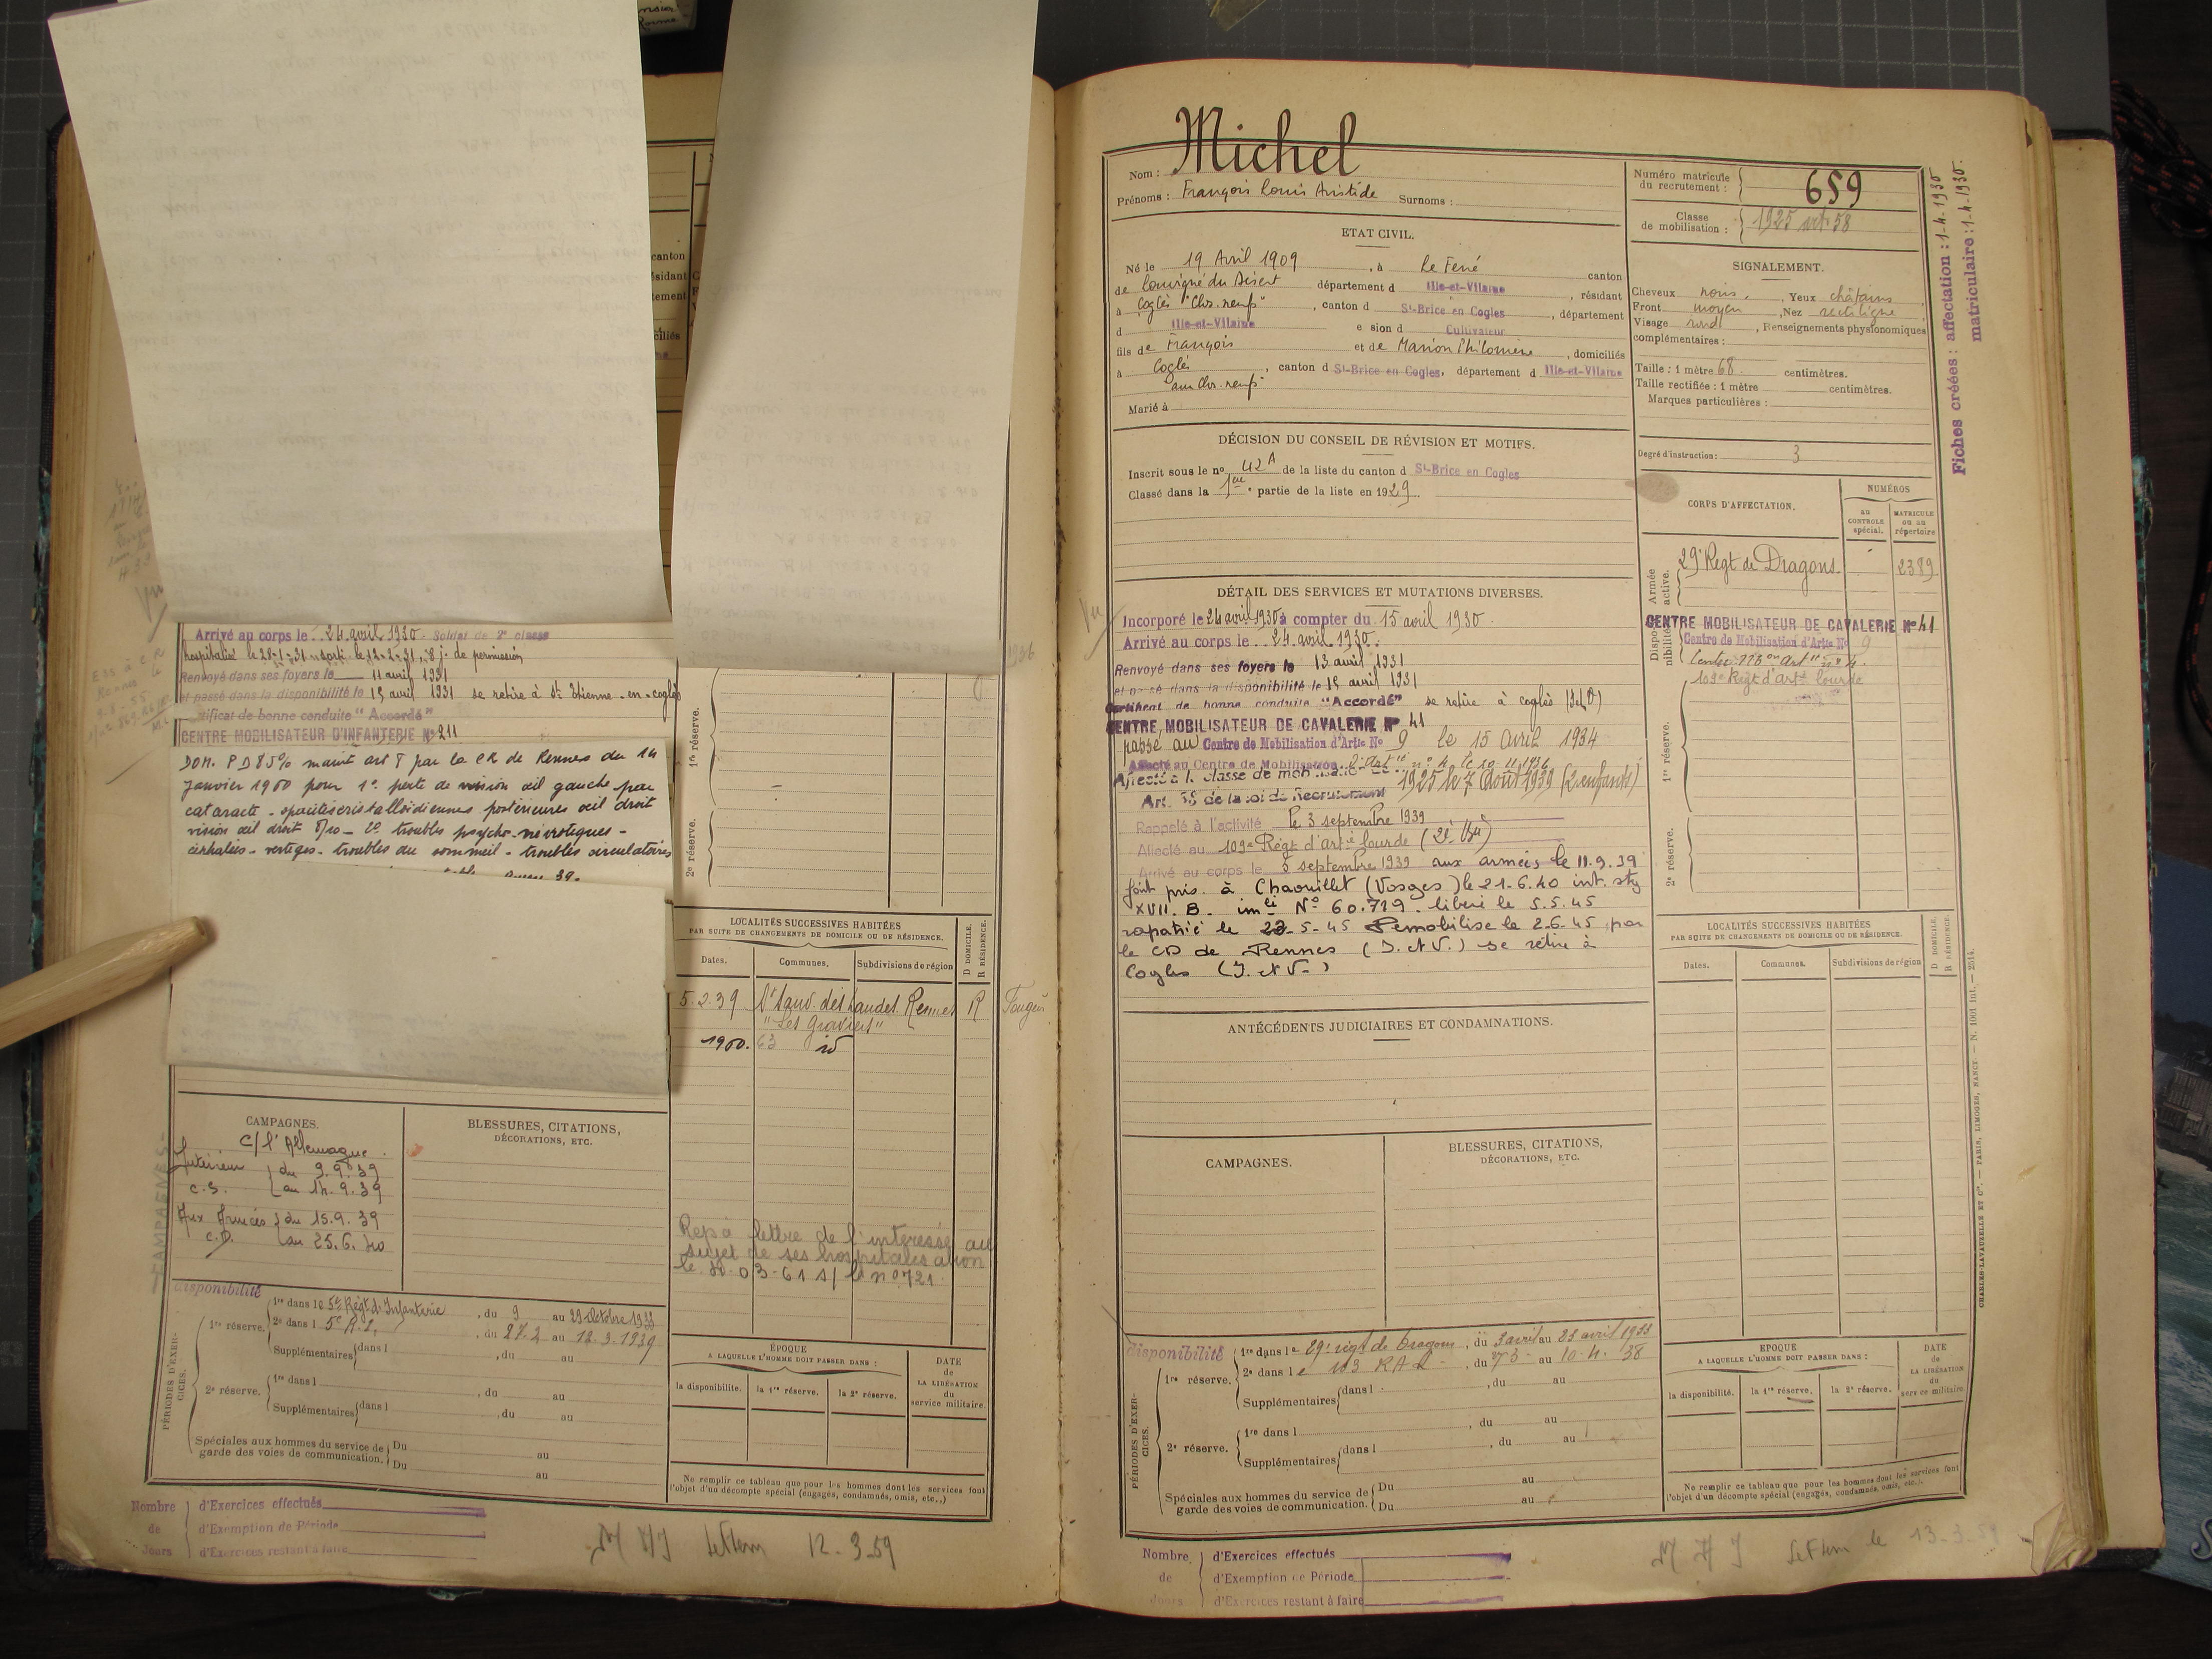 canton
Arrivé au corps le 24 avril 1930. Soldat de 2e classe
hospitalisé le 28-1-31 sorti le 12-2-31, 8 j. de permission
Renvoyé dans ses foyers le 11 avril 1931
et passé dans la disponibilité le 15 avril 1931 se retire à St Etienne-en-Coglès
tificat de bonne conduite "Accordé"
CENTRE MOBILISATEUR D'INFANTERIE No 211
DOM. P D 85% maint art 8 par la CR de Rennes du 14
Janvier 1960 pour 1° perte de vision œil gauche par
cataracte - opacités cristalloïdiennes postérieures œil droit
vision œil droit 8/10 - 2° troubles psycho-névrotiques -
céphalées - vertiges - troubles du sommeil - troubles circulatoires
1re réserve.
2e réserve.
LOCALITÉS SUCCESSIVES HABITÉES
PAR SUITE DE CHANGEMENTS DE DOMICILE OU DE RÉSIDENCE.
D DOMICILE.
R RÉSIDENCE.
Dates. Communes. Subdivisions de région
5.2.39 Rennes R
"Les Graviers"
1960. 63 id
CAMPAGNES.
C/ l'Allemagne.
Intérieur du 9.9.39
C.S. au 14.9.39
Aux Armées du 15.9.39
C.D. au 25.6.40
BLESSURES, CITATIONS,
DÉCORATIONS, ETC.
Rep à lettre de l'intéressé au
sujet de ses hospitalisation
le 30-03-61 s/ le n° 721
disponibilité
PÉRIODES D'EXERCICES.
1re réserve. 1re dans le Régt d'Infanterie, du 9 au 29 Octobre 1933
2e dans l 5e R.I., du 27.2 au 12.3.1939
Supplémentaires dans l , du au
2e réserve. 1re dans l , du au
Supplémentaires dans l , du au
Spéciales aux hommes du service de garde des voies de communication. Du au
Du au
ÉPOQUE
A LAQUELLE L'HOMME DOIT PASSER DANS :
la disponibilité. la 1re réserve. la 2e réserve.
DATE
de
LA LIBÉRATION
du
service militaire.
Ne remplir ce tableau que pour les hommes dont les services font
l'objet d'un décompte spécial (engagés, condamnés, omis, etc.,)
Nombre d'Exercices effectués
de d'Exemption de Période
Jours d'Exercices restant à faire
12.3.59
Nom : Michel
Prénoms : François Louis Aristide Surnoms :
Numéro matricule
du recrutement : 659
Classe
de mobilisation : 1925 art 58
Fiches créées : affectation : 1-4-1930
matriculaire : 1-4-1930.
ETAT CIVIL.
Né le 19 Avril 1909, à Le Ferré canton
de Louvigné du Désert département d Ille-et-Vilaine, résidant
à Coglès "Chx. neufs", canton d St-Brice en Cogles, département
d Ille-et-Vilaine e sion d Cultivateur
fils de François et de Marion Philomène, domiciliés
à Coglès, canton d St-Brice en Cogles, département d Ille-et-Vilaine
aux Chx. neufs
Marié à
SIGNALEMENT.
Cheveux noirs, Yeux châtains
Front moyen, Nez rectiligne
Visage rond, Renseignements physionomiques
complémentaires :
Taille : 1 mètre 68 centimètres.
Taille rectifiée : 1 mètre centimètres.
Marques particulières :
Degré d'instruction : 3
DÉCISION DU CONSEIL DE RÉVISION ET MOTIFS.
Inscrit sous le no 42 A de la liste du canton d St-Brice en Cogles
Classé dans la 1ère partie de la liste en 1929.
CORPS D'AFFECTATION.
NUMÉROS
au
CONTROLE
spécial.
MATRICULE
ou au
répertoire
Armée active.
29e Régt de Dragons 2389
CENTRE MOBILISATEUR DE CAVALERIE No 41
Disponibilité
Centre de Mobilisation d'Artie No 9
103e Régt d'artie lourde
1re réserve.
2e réserve.
DÉTAIL DES SERVICES ET MUTATIONS DIVERSES.
Incorporé le 24 avril 1930 à compter du 15 avril 1930.
Arrivé au corps le 24 avril 1930.
Renvoyé dans ses foyers le 13 avril 1931
et passé dans la disponibilité le 15 avril 1931
Certificat de bonne conduite "Accordé" se retire à Coglès (I et V)
CENTRE MOBILISATEUR DE CAVALERIE No 41
passé au Centre de Mobilisation d'Artie No 9 le 15 Avril 1934
Affecté au Centre de Mobilisation d'Artie no 4 le 10-11-1936
Affecté à la classe de mob 1925 le 7 Août 1939 (2 enfants)
Art. 58 de la loi de Recrutement
Rappelé à l'activité le 3 septembre 1939
Affecté au 103e Régt d'artie lourde
Arrivé au corps le 6 septembre 1939 aux armées le 11.9.39
fait pris. à Chaouillet (Vosges) le 21-6.40 int. stg
XVII. B. imle No 60.719. libéré le 5.5.45
rapatrié le 22-5-45 Démobilisé le 2.6.45 par
le CD de Rennes (I. et V.) se retire à
Cogles (I. et V.)
LOCALITÉS SUCCESSIVES HABITÉES
PAR SUITE DE CHANGEMENTS DE DOMICILE OU DE RÉSIDENCE.
D DOMICILE.
R RÉSIDENCE.
Dates. Communes. Subdivisions de région
ANTÉCÉDENTS JUDICIAIRES ET CONDAMNATIONS.
CAMPAGNES.
BLESSURES, CITATIONS,
DÉCORATIONS, ETC.
disponibilité
PÉRIODES D'EXERCICES.
1re réserve. 1re dans le 29e régt de Dragons, du 3 avril au 23 avril 1933
2e dans le 103 RAL, du au 10-4-38
Supplémentaires dans l , du au
2e réserve. 1re dans l , du au
Supplémentaires dans l , du au
Spéciales aux hommes du service de garde des voies de communication. Du au
Du au
EPOQUE
A LAQUELLE L'HOMME DOIT PASSER DANS :
la disponibilité. la 1re réserve. la 2e réserve.
DATE
de
LA LIBÉRATION
du
service militaire.
Ne remplir ce tableau que pour les hommes dont les services font
l'objet d'un décompte spécial (engagés, condamnés, omis, etc.).
CHARLES-LAVAUZELLE ET Cie. — PARIS, LIMOGES, NANCY — N. 1001 int. — 2514.
Nombre d'Exercices effectués
de d'Exemption de Période
Jours d'Exercices restant à faire
13.3.59